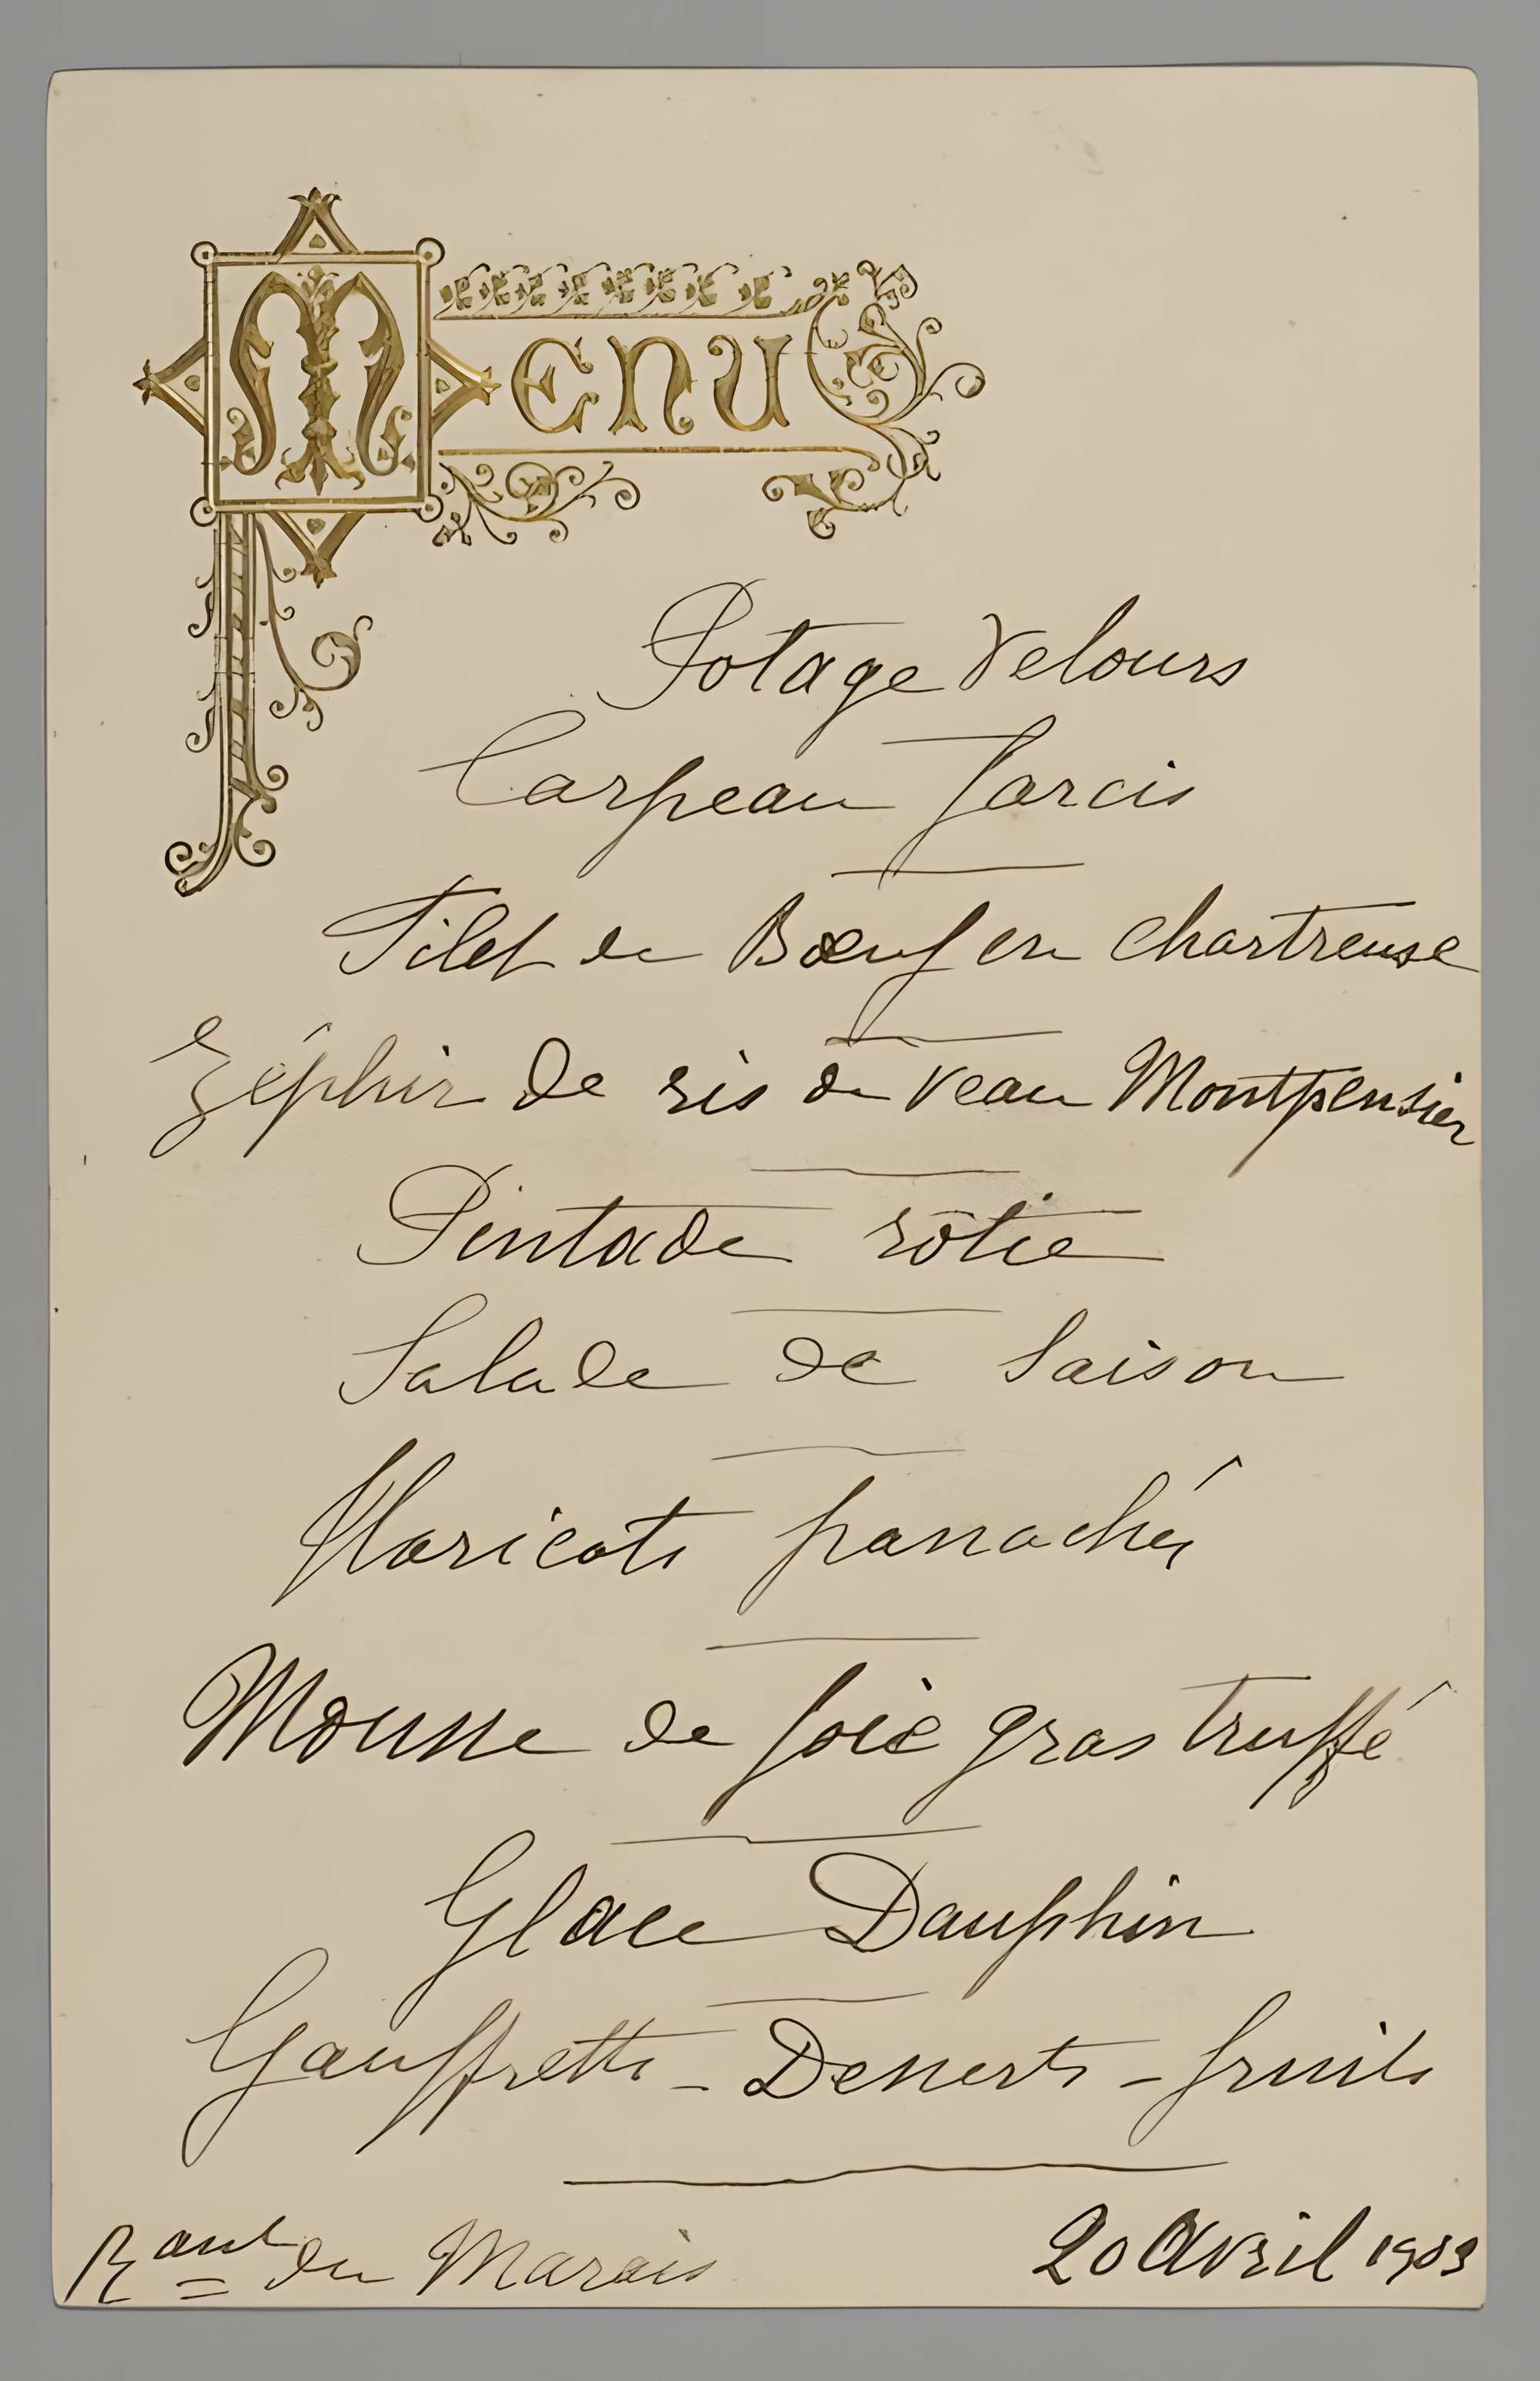 Menu
Potage Velours
Carpeau farcis
Filet de Bœuf en Chartreuse
Zéphir de ris de veau Montpensier
Pintade rôtie
Salade de Saison
Haricots panachés
Mousse de foie gras truffé
Glace Dauphin
Gauffrette - Desserts - fruits
Rant du Marais 20 Avril 1903